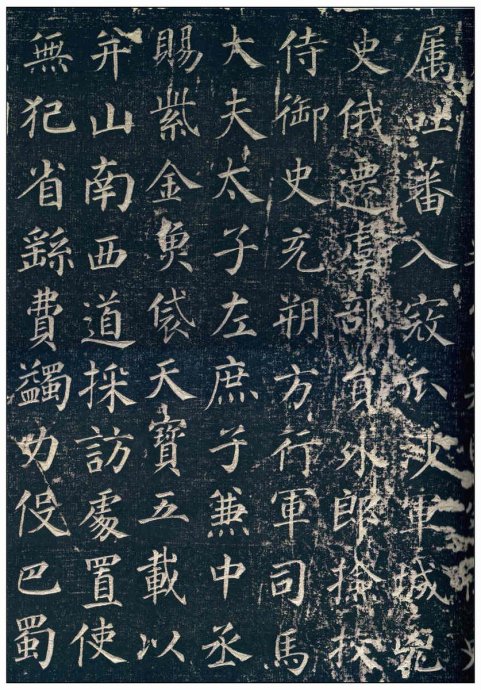 属吐蕃入寇瓜沙軍城兇
史俄遷虞部員外郎撿校
侍御史充朔方行軍司馬
大夫太子左庶子兼中丞
賜紫金魚袋天寶五載以
并山南西道採訪處置使
無犯省繇費蠲力伇巴蜀